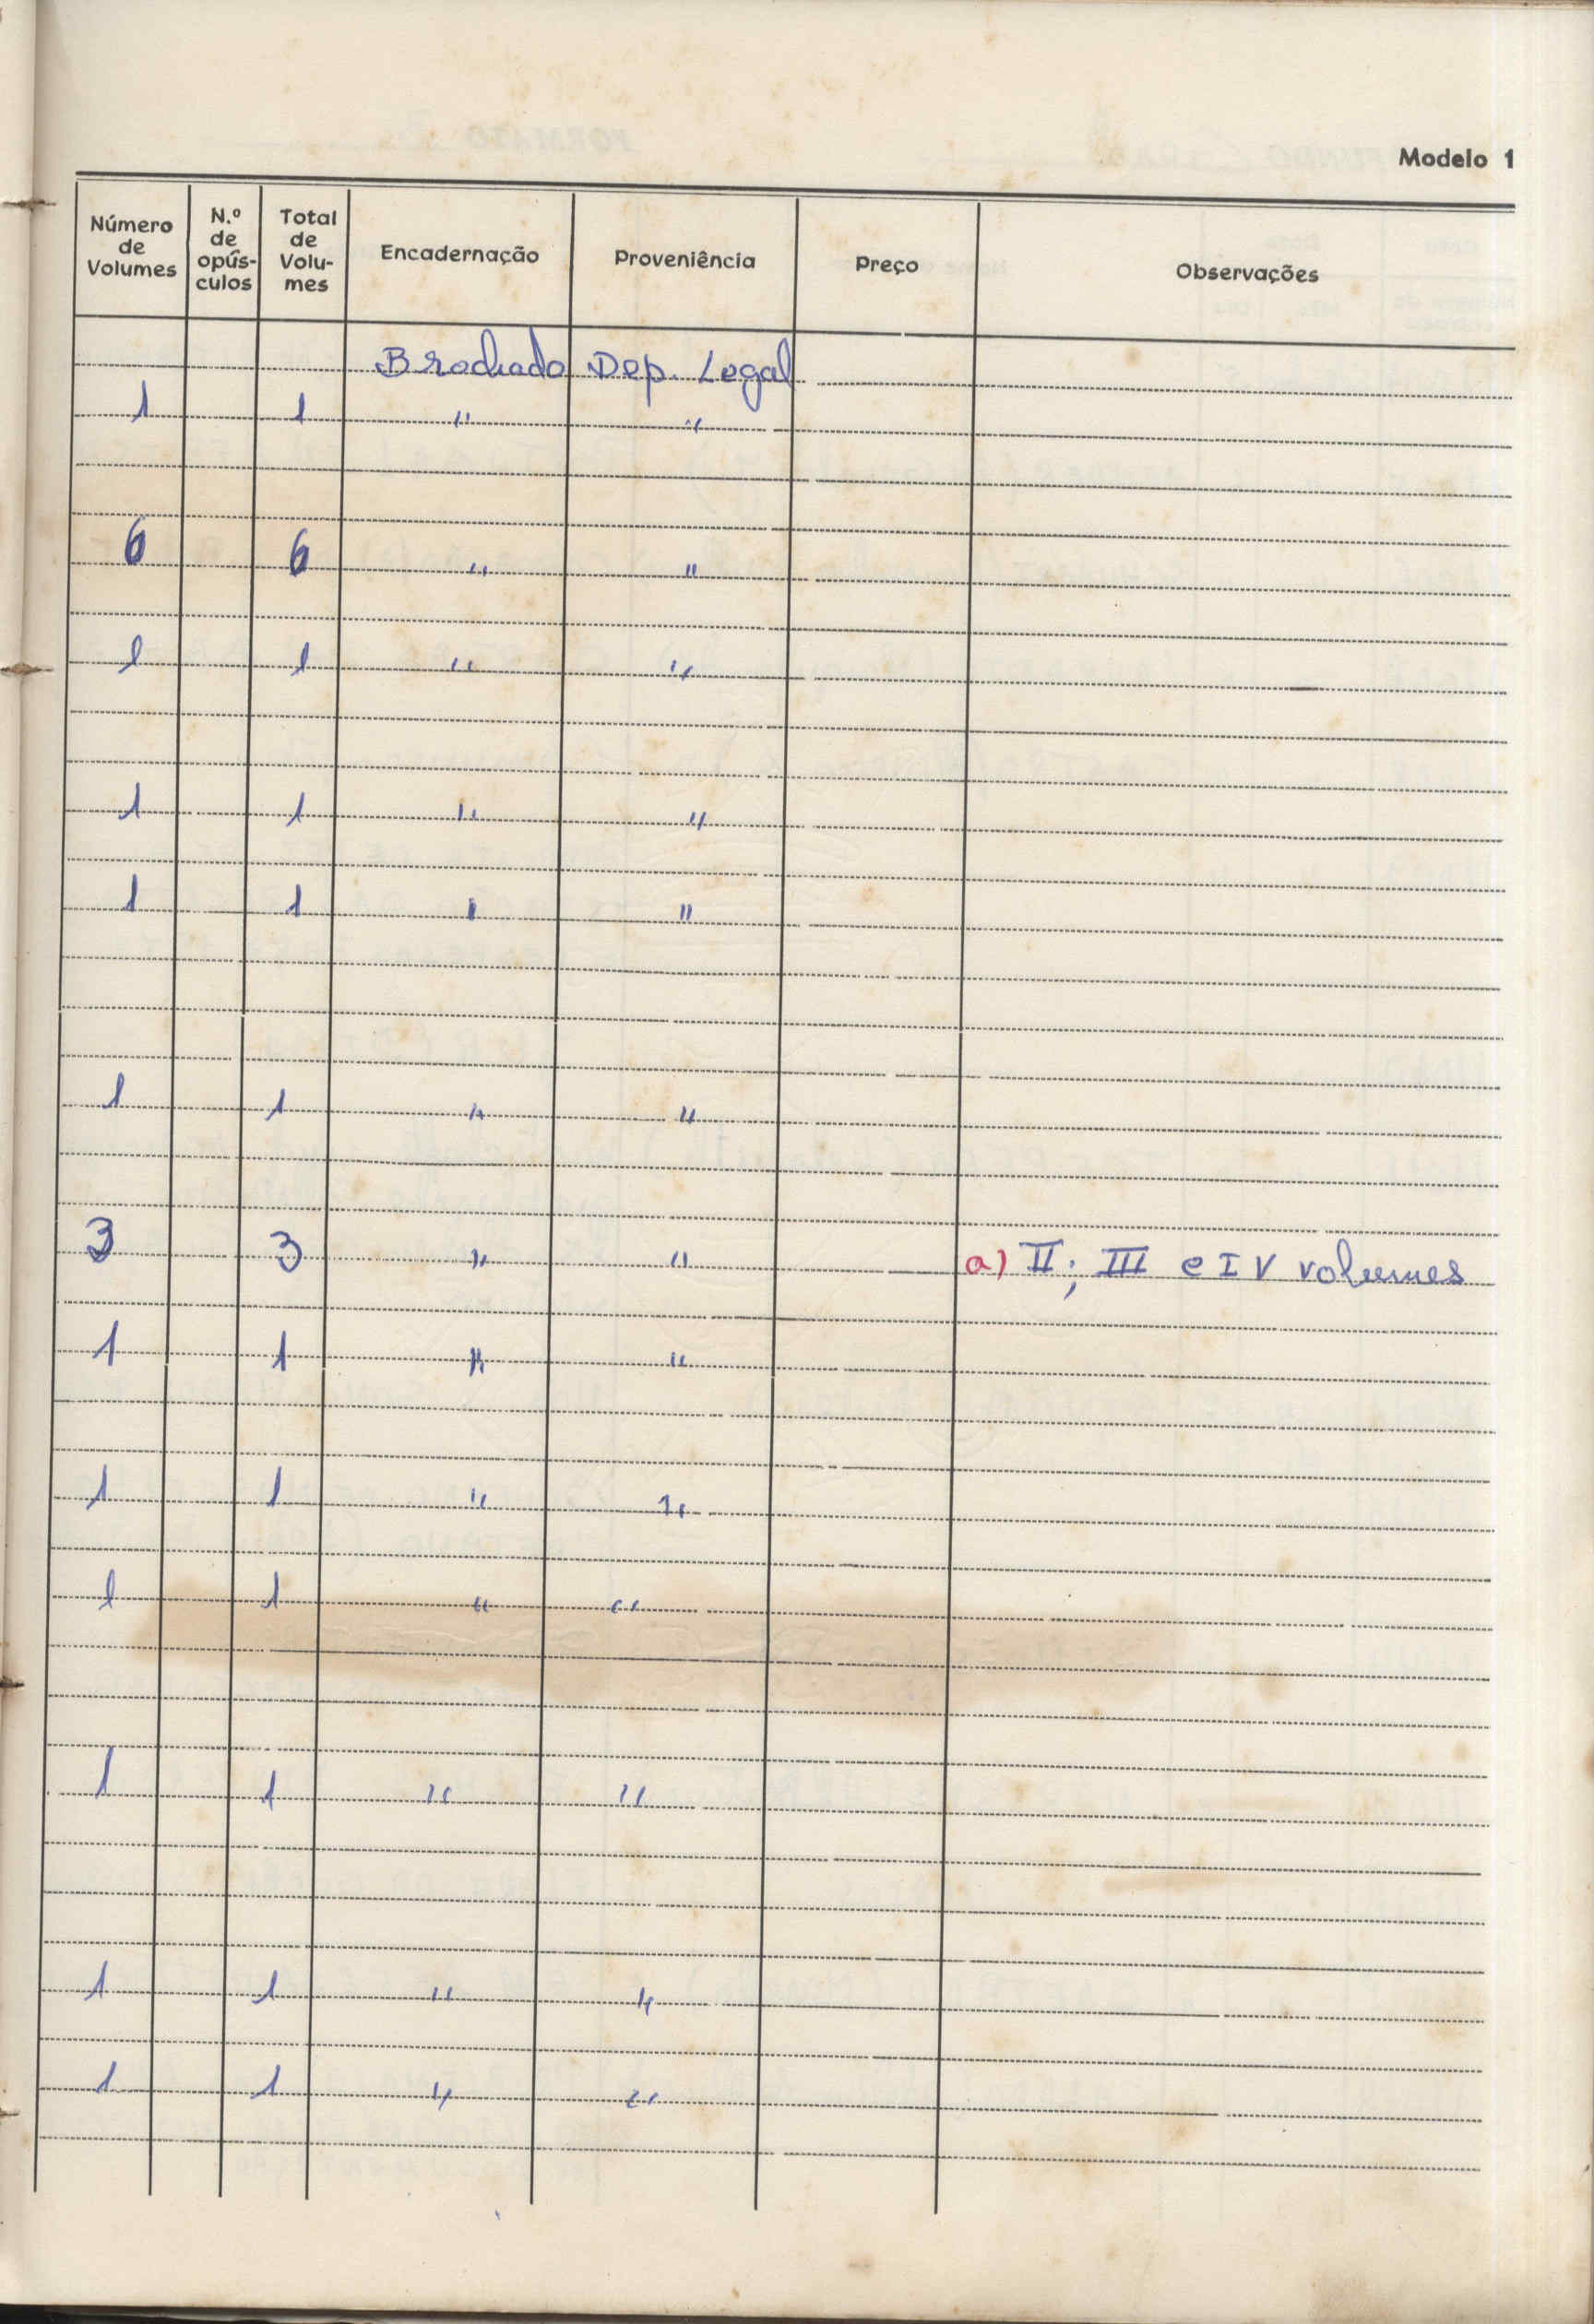 Modelo 1
Número de Volumes | N.º de opús-culos | Total de Volu-mes | Encadernação | Proveniência | Preço | Observações
Brochado Dep. Legal
1 1 " "
6 6 " "
1 1 " "
1 1 " "
1 1 " "
1 1 " "
3 3 " " a) II; III e IV volumes
1 1 " "
1 1 " "
1 1 " "
1 1 " "
1 1 " "
1 1 " "